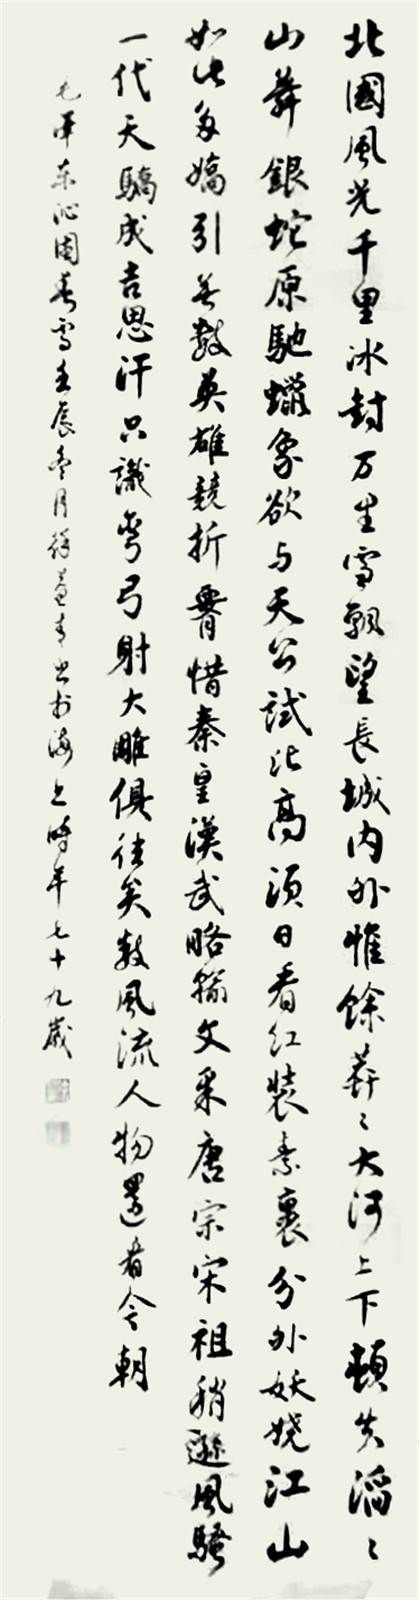 北國風光千里冰封万里雪飘望長城内外惟餘莽々大河上下頓失滔々
山舞銀蛇原馳蠟象欲与天公試比高須日看红裝素裹分外妖娆江山
如此多嬌引無數英雄競折腰惜秦皇漢武略輸文采唐宗宋祖稍遜風騷
一代天驕成吉思汗只識彎弓射大雕俱往矣數風流人物還看今朝
毛澤东沁園春雪壬辰冬月徐青书於海上時年七十九歲